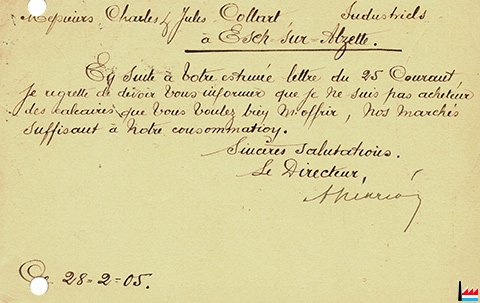 Messieurs Charles & Jules Collart Industriels
à Esch-sur-Alzette.
En suite à votre estimée lettre du 25 Courant,
je regrette de devoir vous informer que je ne suis pas acheteur
des calcaires que vous voulez bien m'offrir, nos marchés
suffisant à notre consommation.
Sincères salutations.
Le Directeur,
Ce 28-2-05.